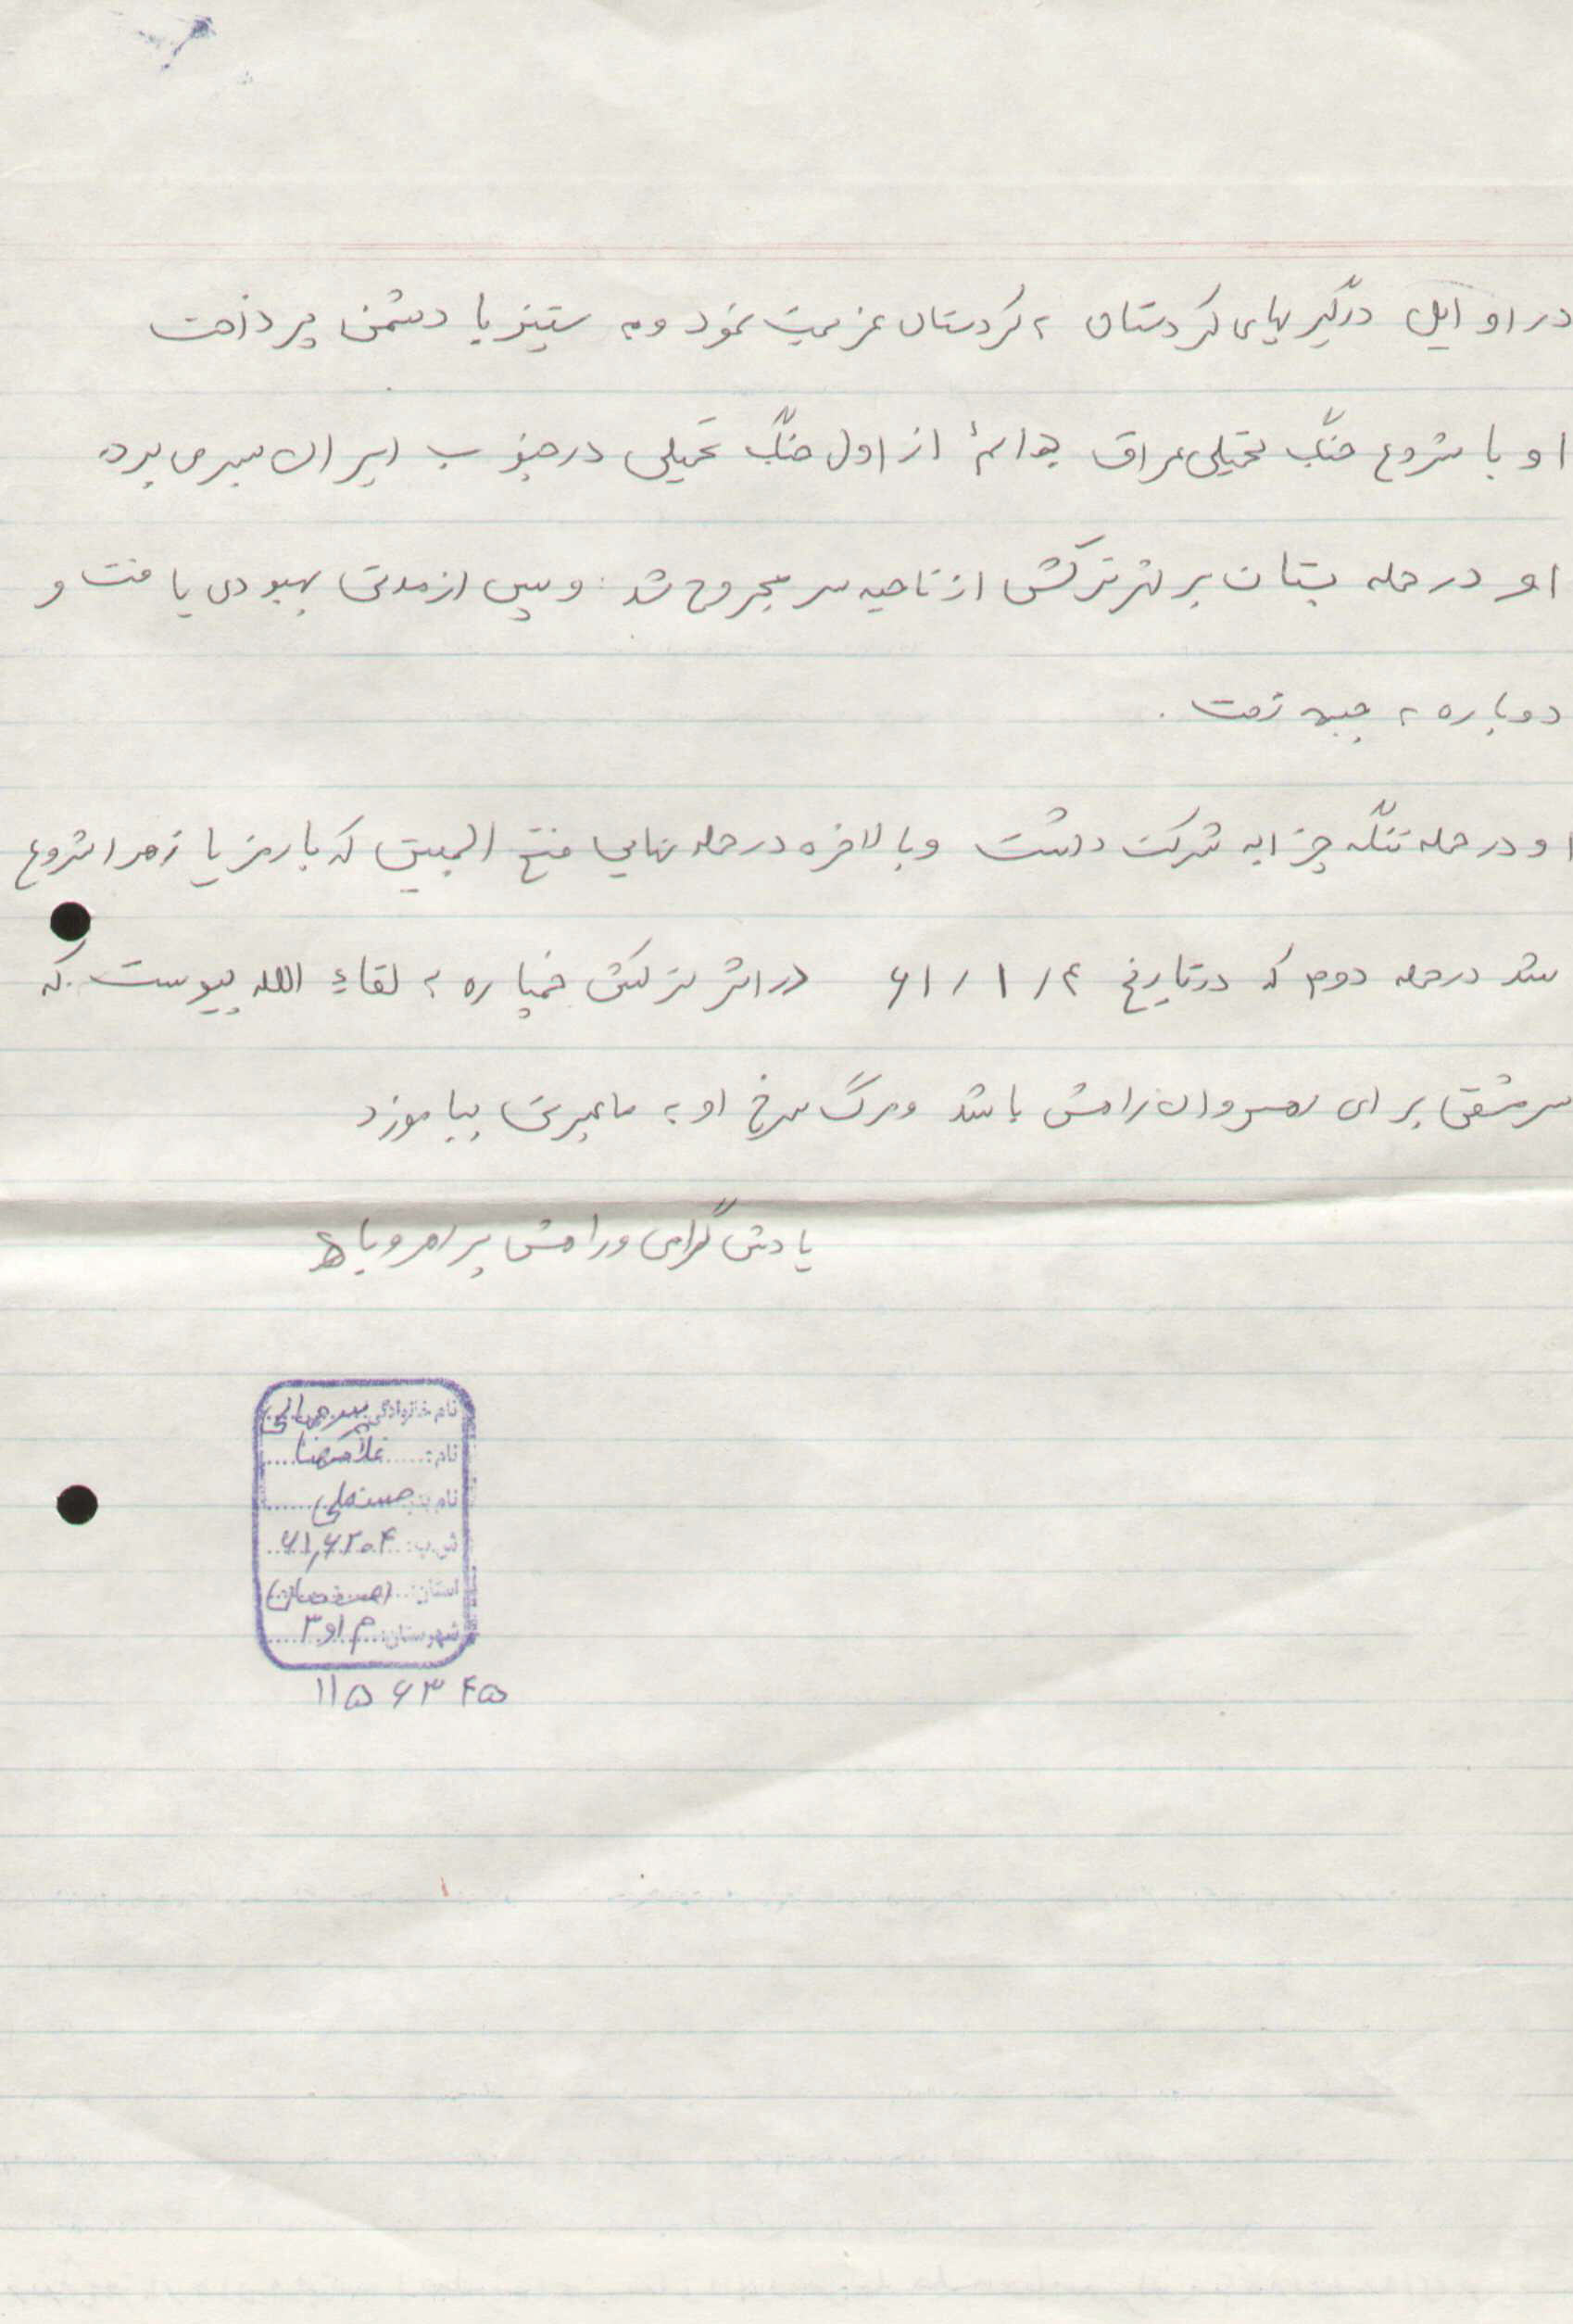 در اوایل درگیریهای کردستان به کردستان عزیمت نمود و به ستیز با دشمن پرداخت
او با شروع جنگ تحمیلی عراق از اول جنگ تحمیلی در جنوب ایران بسر می برد
او در حمله بستان بر اثر ترکش از ناحیه سر مجروح شد و پس از مدتی بهبودی یافت و
دوباره به جبهه رفت.
او در حمله تنگه چزابه شرکت داشت و بالاخره در حمله نهایی فتح المبین که با رمز یا زهرا شروع
شد در حمله دوم که در تاریخ ۶۱/۱/۴ در اثر ترکش خمپاره به لقاء الله پیوست که
سرمشقی برای رهروان راهش باشد و مرگ سرخ او به ما عبرتی بیاموزد
یادش گرامی و راهش پر رهرو باد
نام خانوادگی:
نام: غلامرضا
نام پدر: حسنعلی
ش.پ: ۶۱,۶۲۰۴
استان: اصفهان
شهرستان: م او ۳
۱۱۵۶۳۴۵